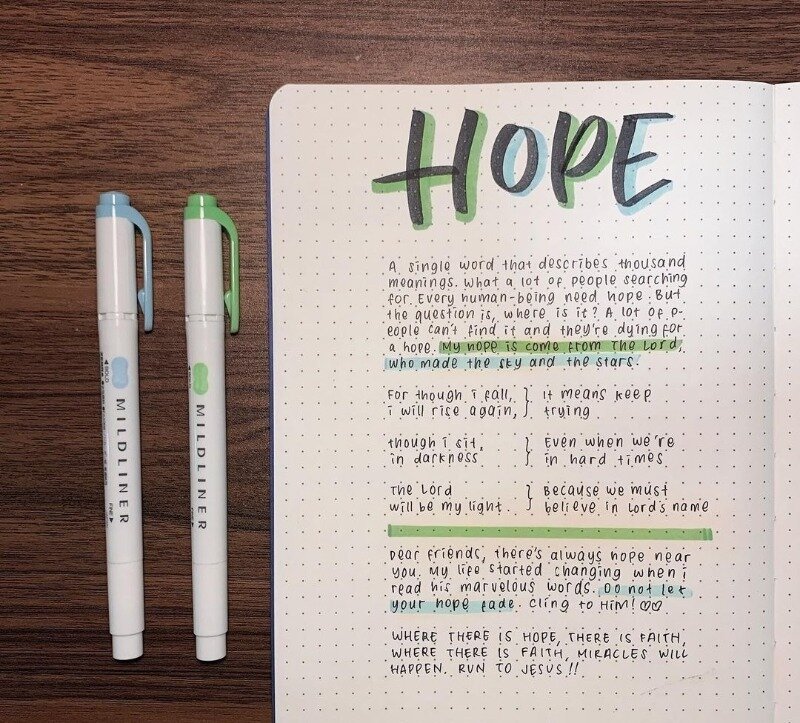 HOPE
A single word that describes thousand
meanings. What a lot of people searching
for. Every human-being need hope. But
the question is, where is it? A lot of p-
eople can't find it and they're dying for
a hope. My hope is come from The Lord,
who made the sky and the stars.
For though i fall, } it means keep
i will rise again, } trying
though i sit } Even when we're
in darkness } in hard times
The Lord } Because we must
will be my light. } believe in Lord's name
Dear friends, there's always hope near
you. My life started changing when i
read his marvelous words. Do not let
your hope fade. Cling to HIM! ♡♡
WHERE THERE IS HOPE, THERE IS FAITH,
WHERE THERE IS FAITH, MIRACLES WILL
HAPPEN. RUN TO JESUS!!
BOLD
MILDLINER
FINE
MILDLINER